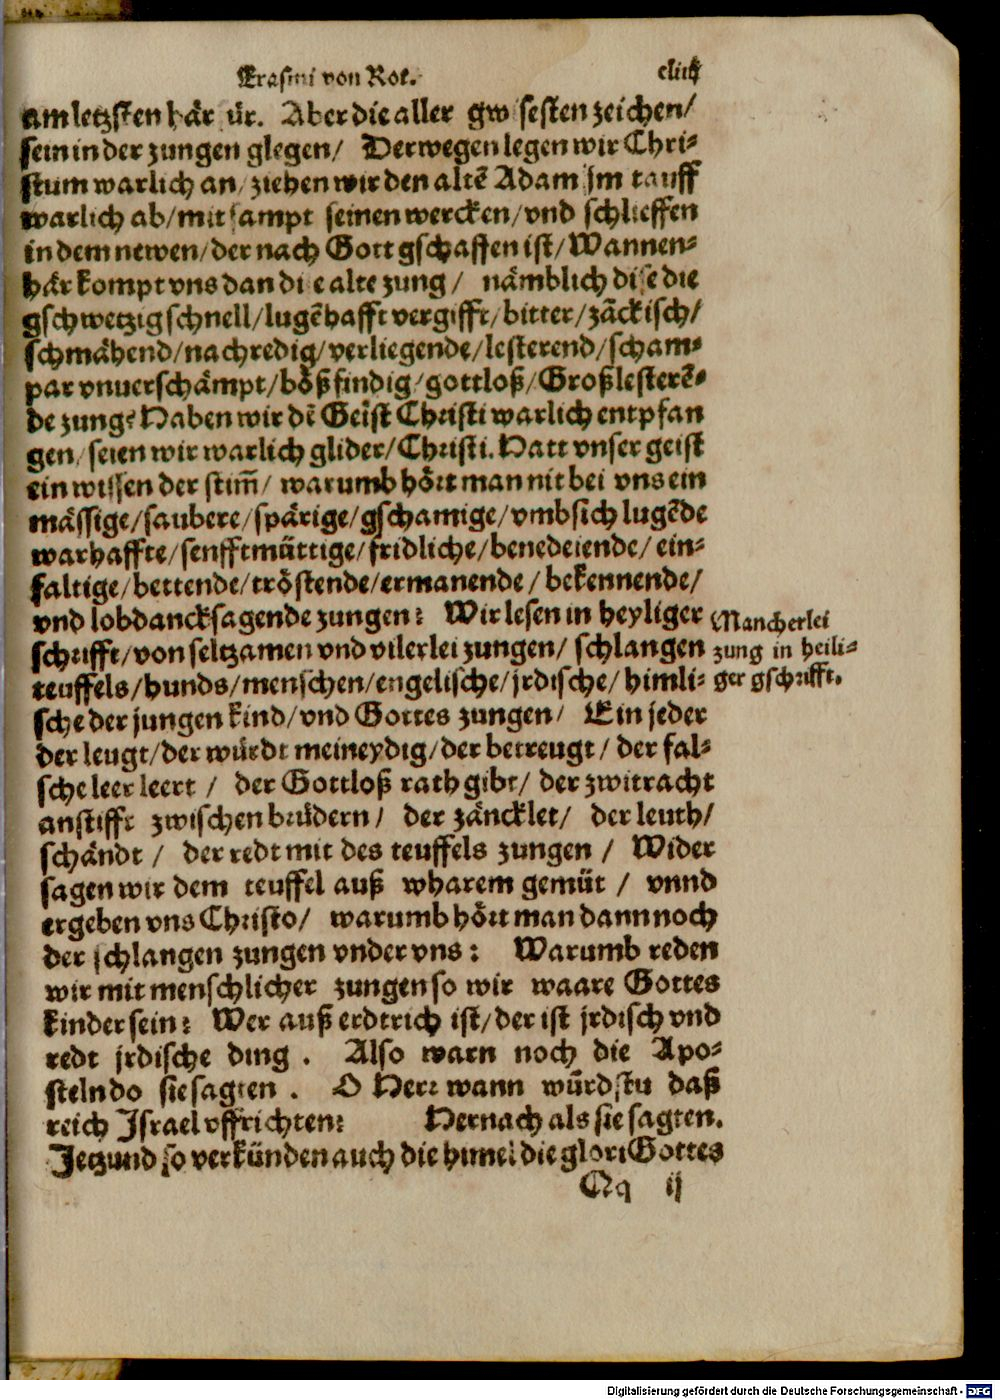 Erasmi von Rot. cliiij
am letzsten här für. Aber die aller gwisesten zeichen/
sein in der zungen glegen/ Derwegen legen wir Chri-
stum warlich an/ ziehen wir den altē Adam jm tauff
warlich ab/ mit sampt seinen wercken/ vnd schlieffen
in dem newen/ der nach Gott gschaffen ist/ Wannen-
här kompt vns dan die alte zung/ nämblich dise die
gschwetzig schnell/ lugēhafft vergifft/ bitter/ zäckisch/
schmähend/ nachredig/ verliegende/ lesterend/ scham-
par vnuerschämpt/ bößfindig/ gottloß/ Großlesterē-
de zung? Haben wir dē Geist Christi warlich entpfan
gen/ seien wir warlich glider/ Christi. Hatt vnser geist
ein wissen der stim̄/ warumb hört man nit bei vns ein
mässige/ saubere/ spärige/ gschamige/ vmbsich lugēde
warhaffte/ senfftmüttige/ fridliche/ benedeiende/ ein-
faltige/ bettende/ tröstende/ ermanende/ bekennende/
vnd lobdancksagende zungen? Wir lesen in heyliger
schrifft/ von seltzamen vnd vilerlei zungen/ schlangen
teuffels/ hunds/ menschen/ engelische/ jrdische/ himli-
sche der jungen kind/ vnd Gottes zungen/ Ein jeder
der leugt/ der würdt meineydig/ der betreugt/ der fal-
sche leer leert/ der Gottloß rath gibt/ der zwitracht
anstifft zwischen brüdern/ der zäncklet/ der leuth/
schändt/ der redt mit des teuffels zungen/ Wider
sagen wir dem teuffel auß wharem gemüt/ vnnd
ergeben vns Christo/ warumb hört man dann noch
der schlangen zungen vnder vns? Warumb reden
wir mit menschlicher zungen so wir waare Gottes
kinder sein? Wer auß erdtrich ist/ der ist jrdisch vnd
redt jrdische ding. Also warn noch die Apo-
steln do sie sagten. O Herr wann würdstu daß
reich Jsrael vffrichten? Hernach als sie sagten.
Jetzund so verkünden auch die himel die glori Gottes
Qq ij
Mancherlei
zung in heili-
ger gschrifft.
Digitalisierung gefördert durch die Deutsche Forschungsgemeinschaft - DFG